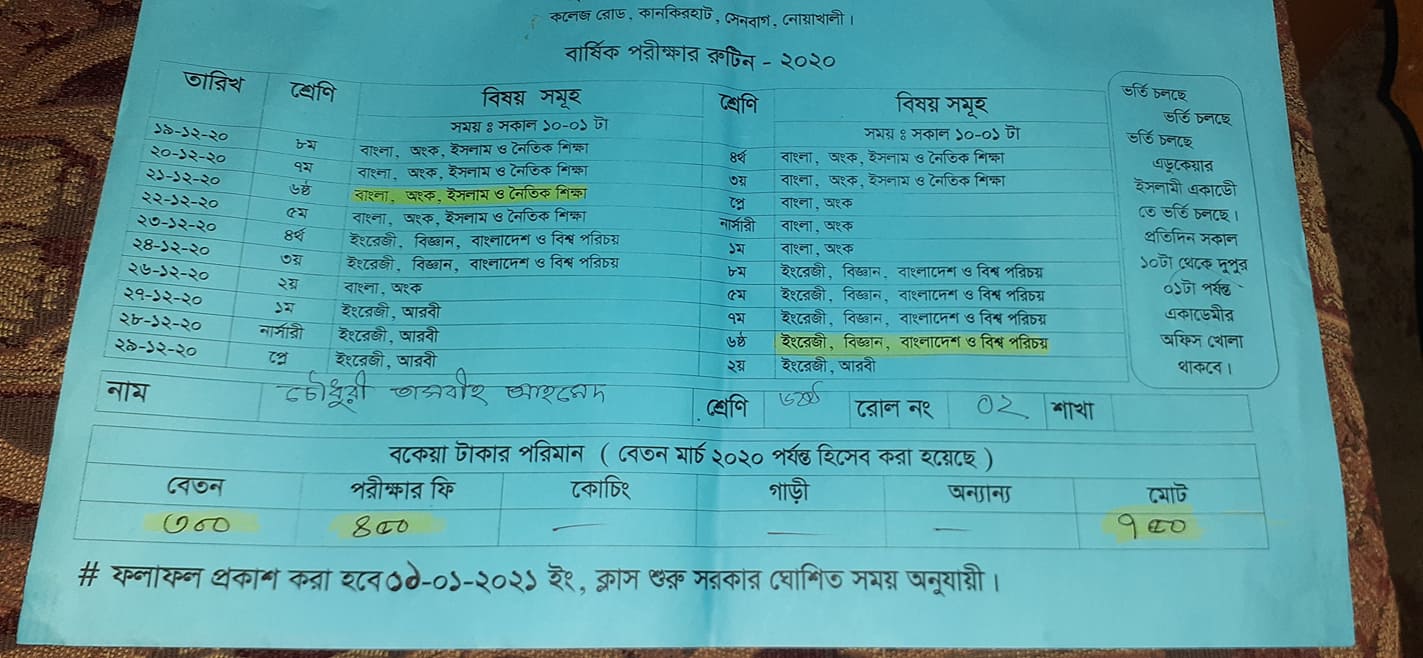 কলেজ রোড, কানকিরহাট, সেনবাগ, নোয়াখালী।
বার্ষিক পরীক্ষার রুটিন - ২০২০
তারিখ শ্রেণি বিষয় সমূহ শ্রেণি বিষয় সমূহ
সময় ঃ সকাল ১০-০১ টা সময় ঃ সকাল ১০-০১ টা
১৯-১২-২০ ৮ম বাংলা, অংক, ইসলাম ও নৈতিক শিক্ষা ৪র্থ বাংলা, অংক, ইসলাম ও নৈতিক শিক্ষা
২০-১২-২০ ৭ম বাংলা, অংক, ইসলাম ও নৈতিক শিক্ষা ৩য় বাংলা, অংক, ইসলাম ও নৈতিক শিক্ষা
২১-১২-২০ ৬ষ্ঠ বাংলা, অংক, ইসলাম ও নৈতিক শিক্ষা প্লে বাংলা, অংক
২২-১২-২০ ৫ম বাংলা, অংক, ইসলাম ও নৈতিক শিক্ষা নার্সারী বাংলা, অংক
২৩-১২-২০ ৪র্থ ইংরেজী, বিজ্ঞান, বাংলাদেশ ও বিশ্ব পরিচয় ১ম বাংলা, অংক
২৪-১২-২০ ৩য় ইংরেজী, বিজ্ঞান, বাংলাদেশ ও বিশ্ব পরিচয় ৮ম ইংরেজী, বিজ্ঞান, বাংলাদেশ ও বিশ্ব পরিচয়
২৬-১২-২০ ২য় বাংলা, অংক ৫ম ইংরেজী, বিজ্ঞান, বাংলাদেশ ও বিশ্ব পরিচয়
২৭-১২-২০ ১ম ইংরেজী, আরবী ৭ম ইংরেজী, বিজ্ঞান, বাংলাদেশ ও বিশ্ব পরিচয়
২৮-১২-২০ নার্সারী ইংরেজী, আরবী ৬ষ্ঠ ইংরেজী, বিজ্ঞান, বাংলাদেশ ও বিশ্ব পরিচয়
২৯-১২-২০ প্লে ইংরেজী, আরবী ২য় ইংরেজী, আরবী
ভর্তি চলছে
ভর্তি চলছে
ভর্তি চলছে
এডুকেয়ার
ইসলামী একাডেমী
তে ভর্তি চলছে।
প্রতিদিন সকাল
১০টা থেকে দুপুর
০১টা পর্যন্ত
একাডেমীর
অফিস খোলা
থাকবে।
নাম চৌধুরী তাসবীহ আহমেদ শ্রেণি ৬ষ্ঠ রোল নং ০২ শাখা
বকেয়া টাকার পরিমান ( বেতন মার্চ ২০২০ পর্যন্ত হিসেব করা হয়েছে )
বেতন পরীক্ষার ফি কোচিং গাড়ী অন্যান্য মোট
৩০০ ৪৫০ — — — ৭৫০
# ফলাফল প্রকাশ করা হবে -০১-২০২১ ইং, ক্লাস শুরু সরকার ঘোশিত সময় অনুযায়ী।